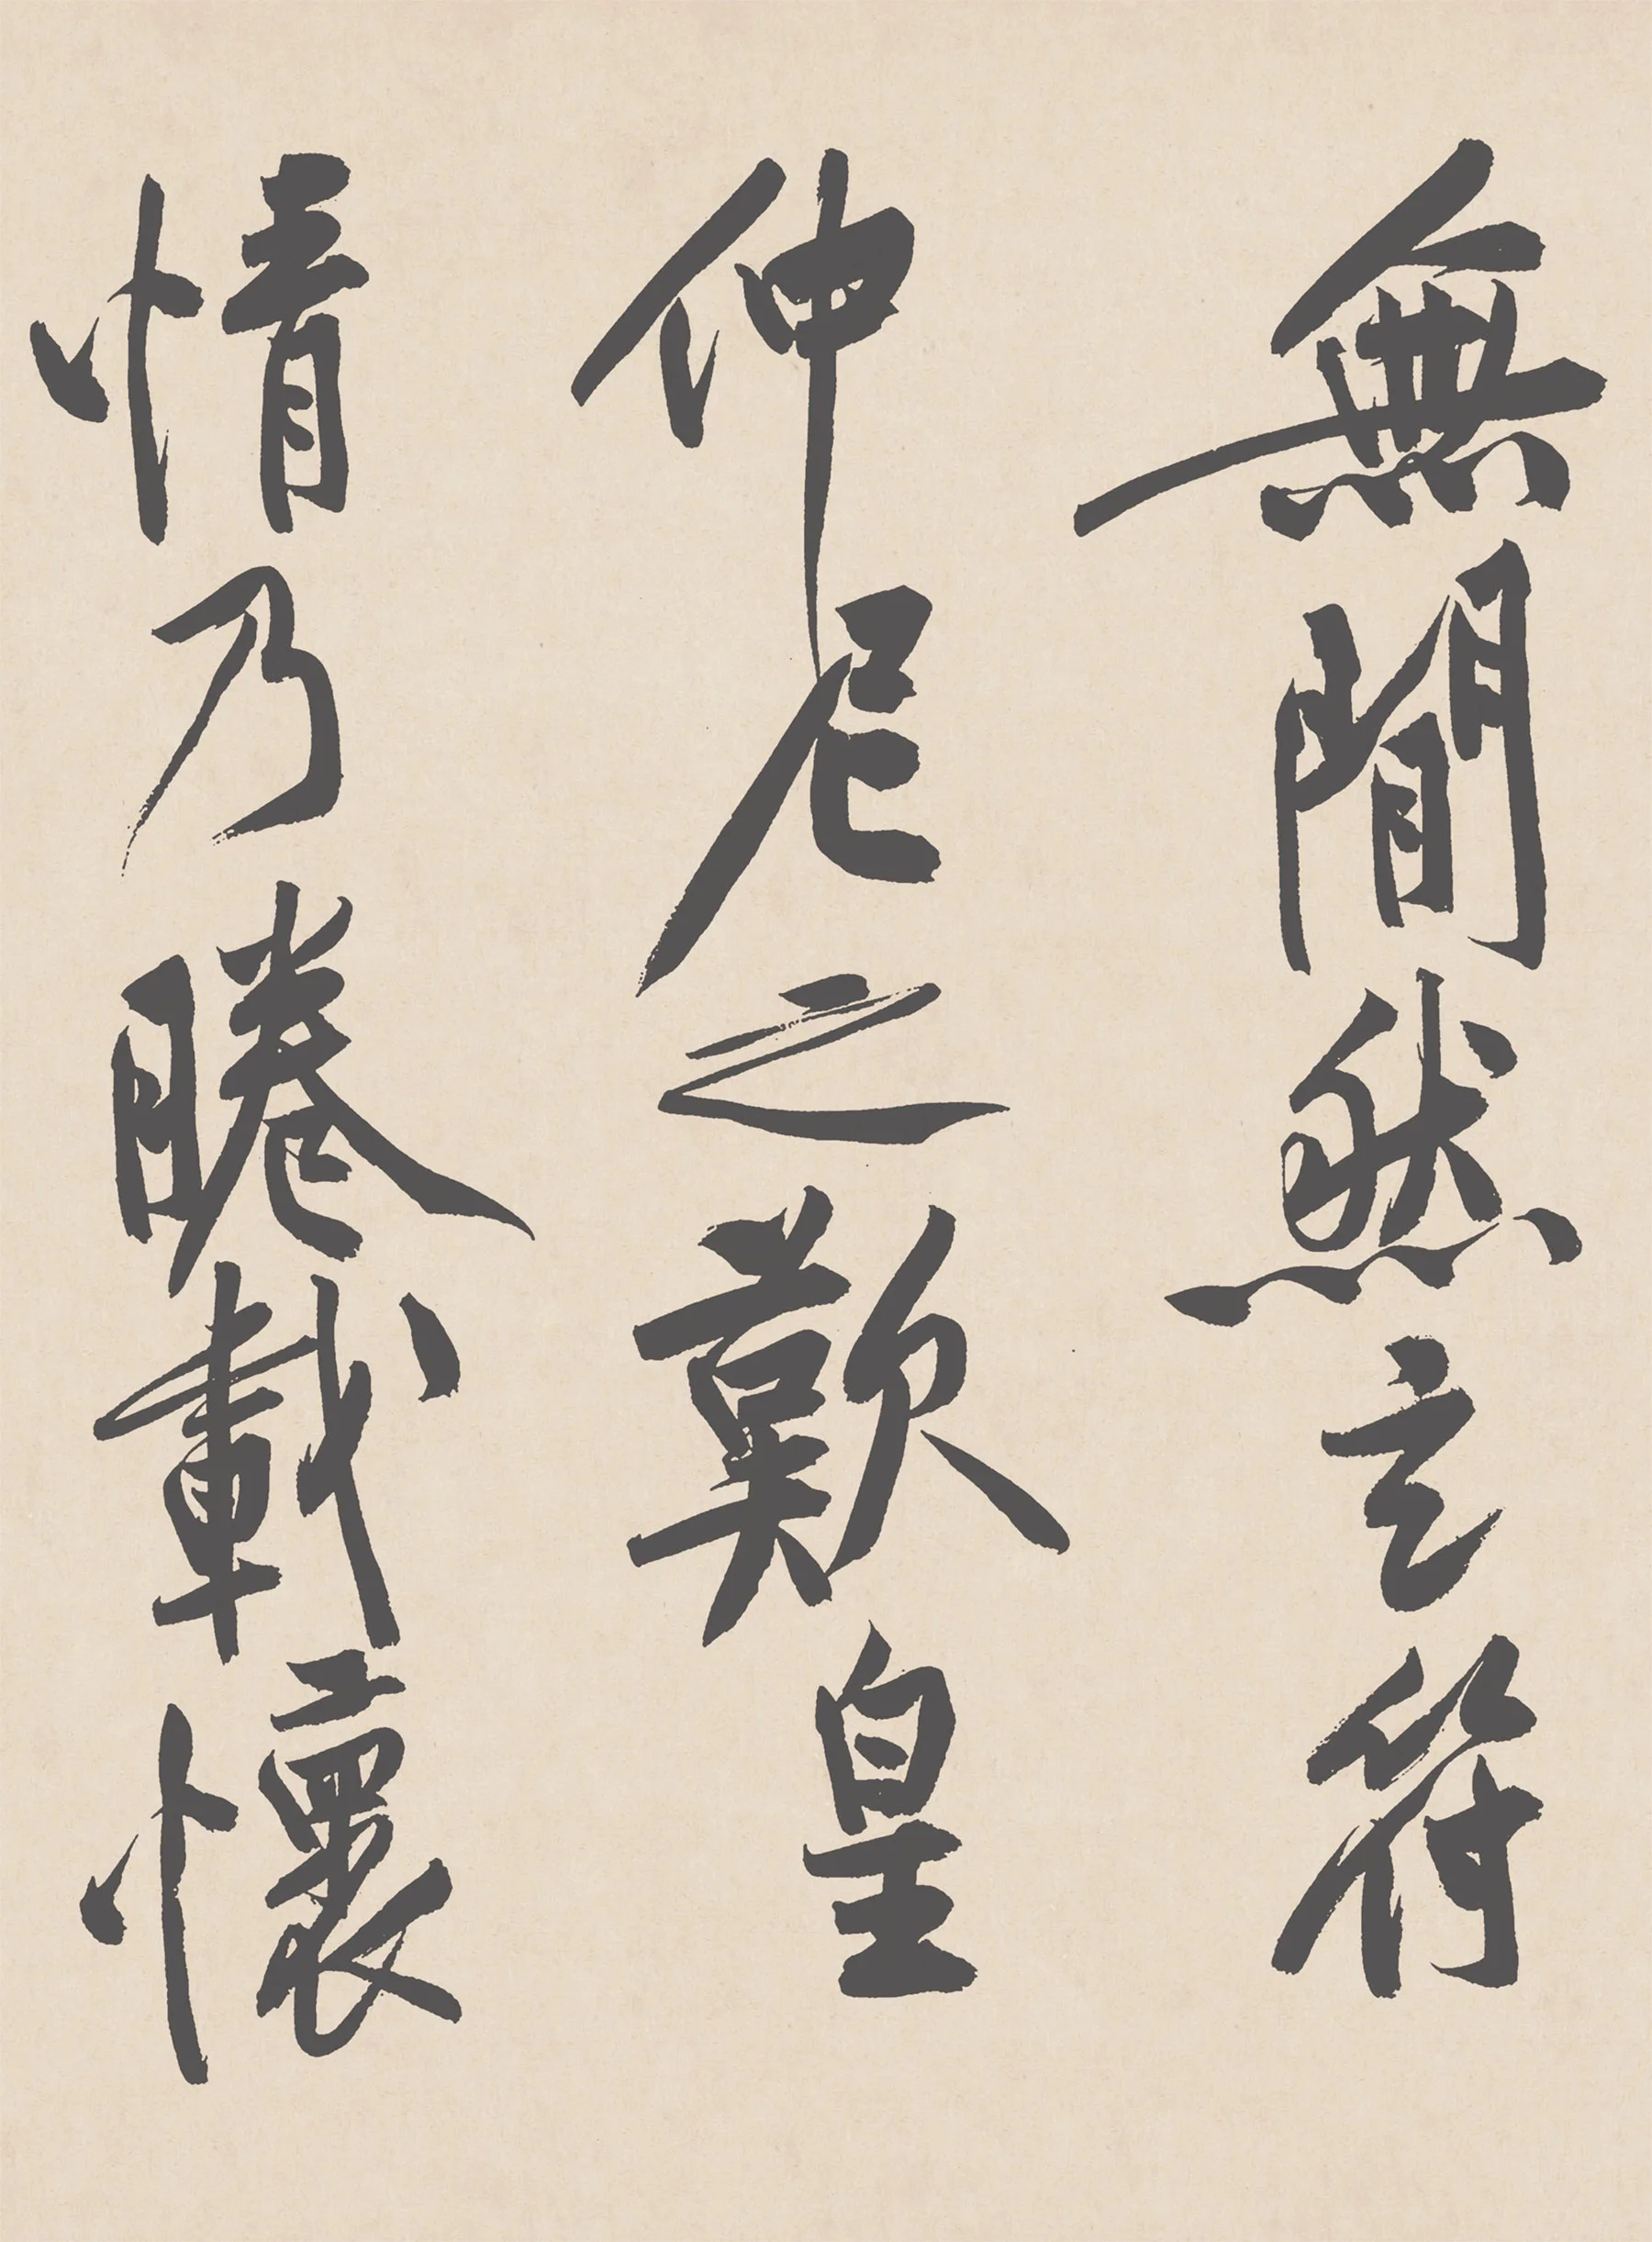 無間然玄符
仲尼之歎皇
情乃睠載懷